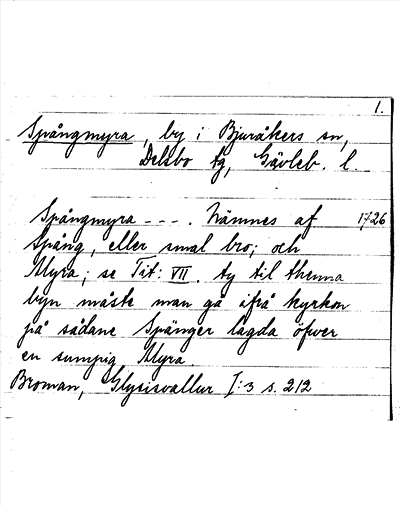 1.
Spångmyra, by i Bjuråkers sn,
Delsbo tg, Gävleb. l.
Spångmyra - - - . Nämnes af 1726
Spång, eller smal bro; och
Myra; se Tit: VII. ty til thenna
byn måste man gå ifrå kyrkon
på sådane Spänger lagda öfwer
en sumpig Myra.
Broman, Glysisvallur I:3 s. 212